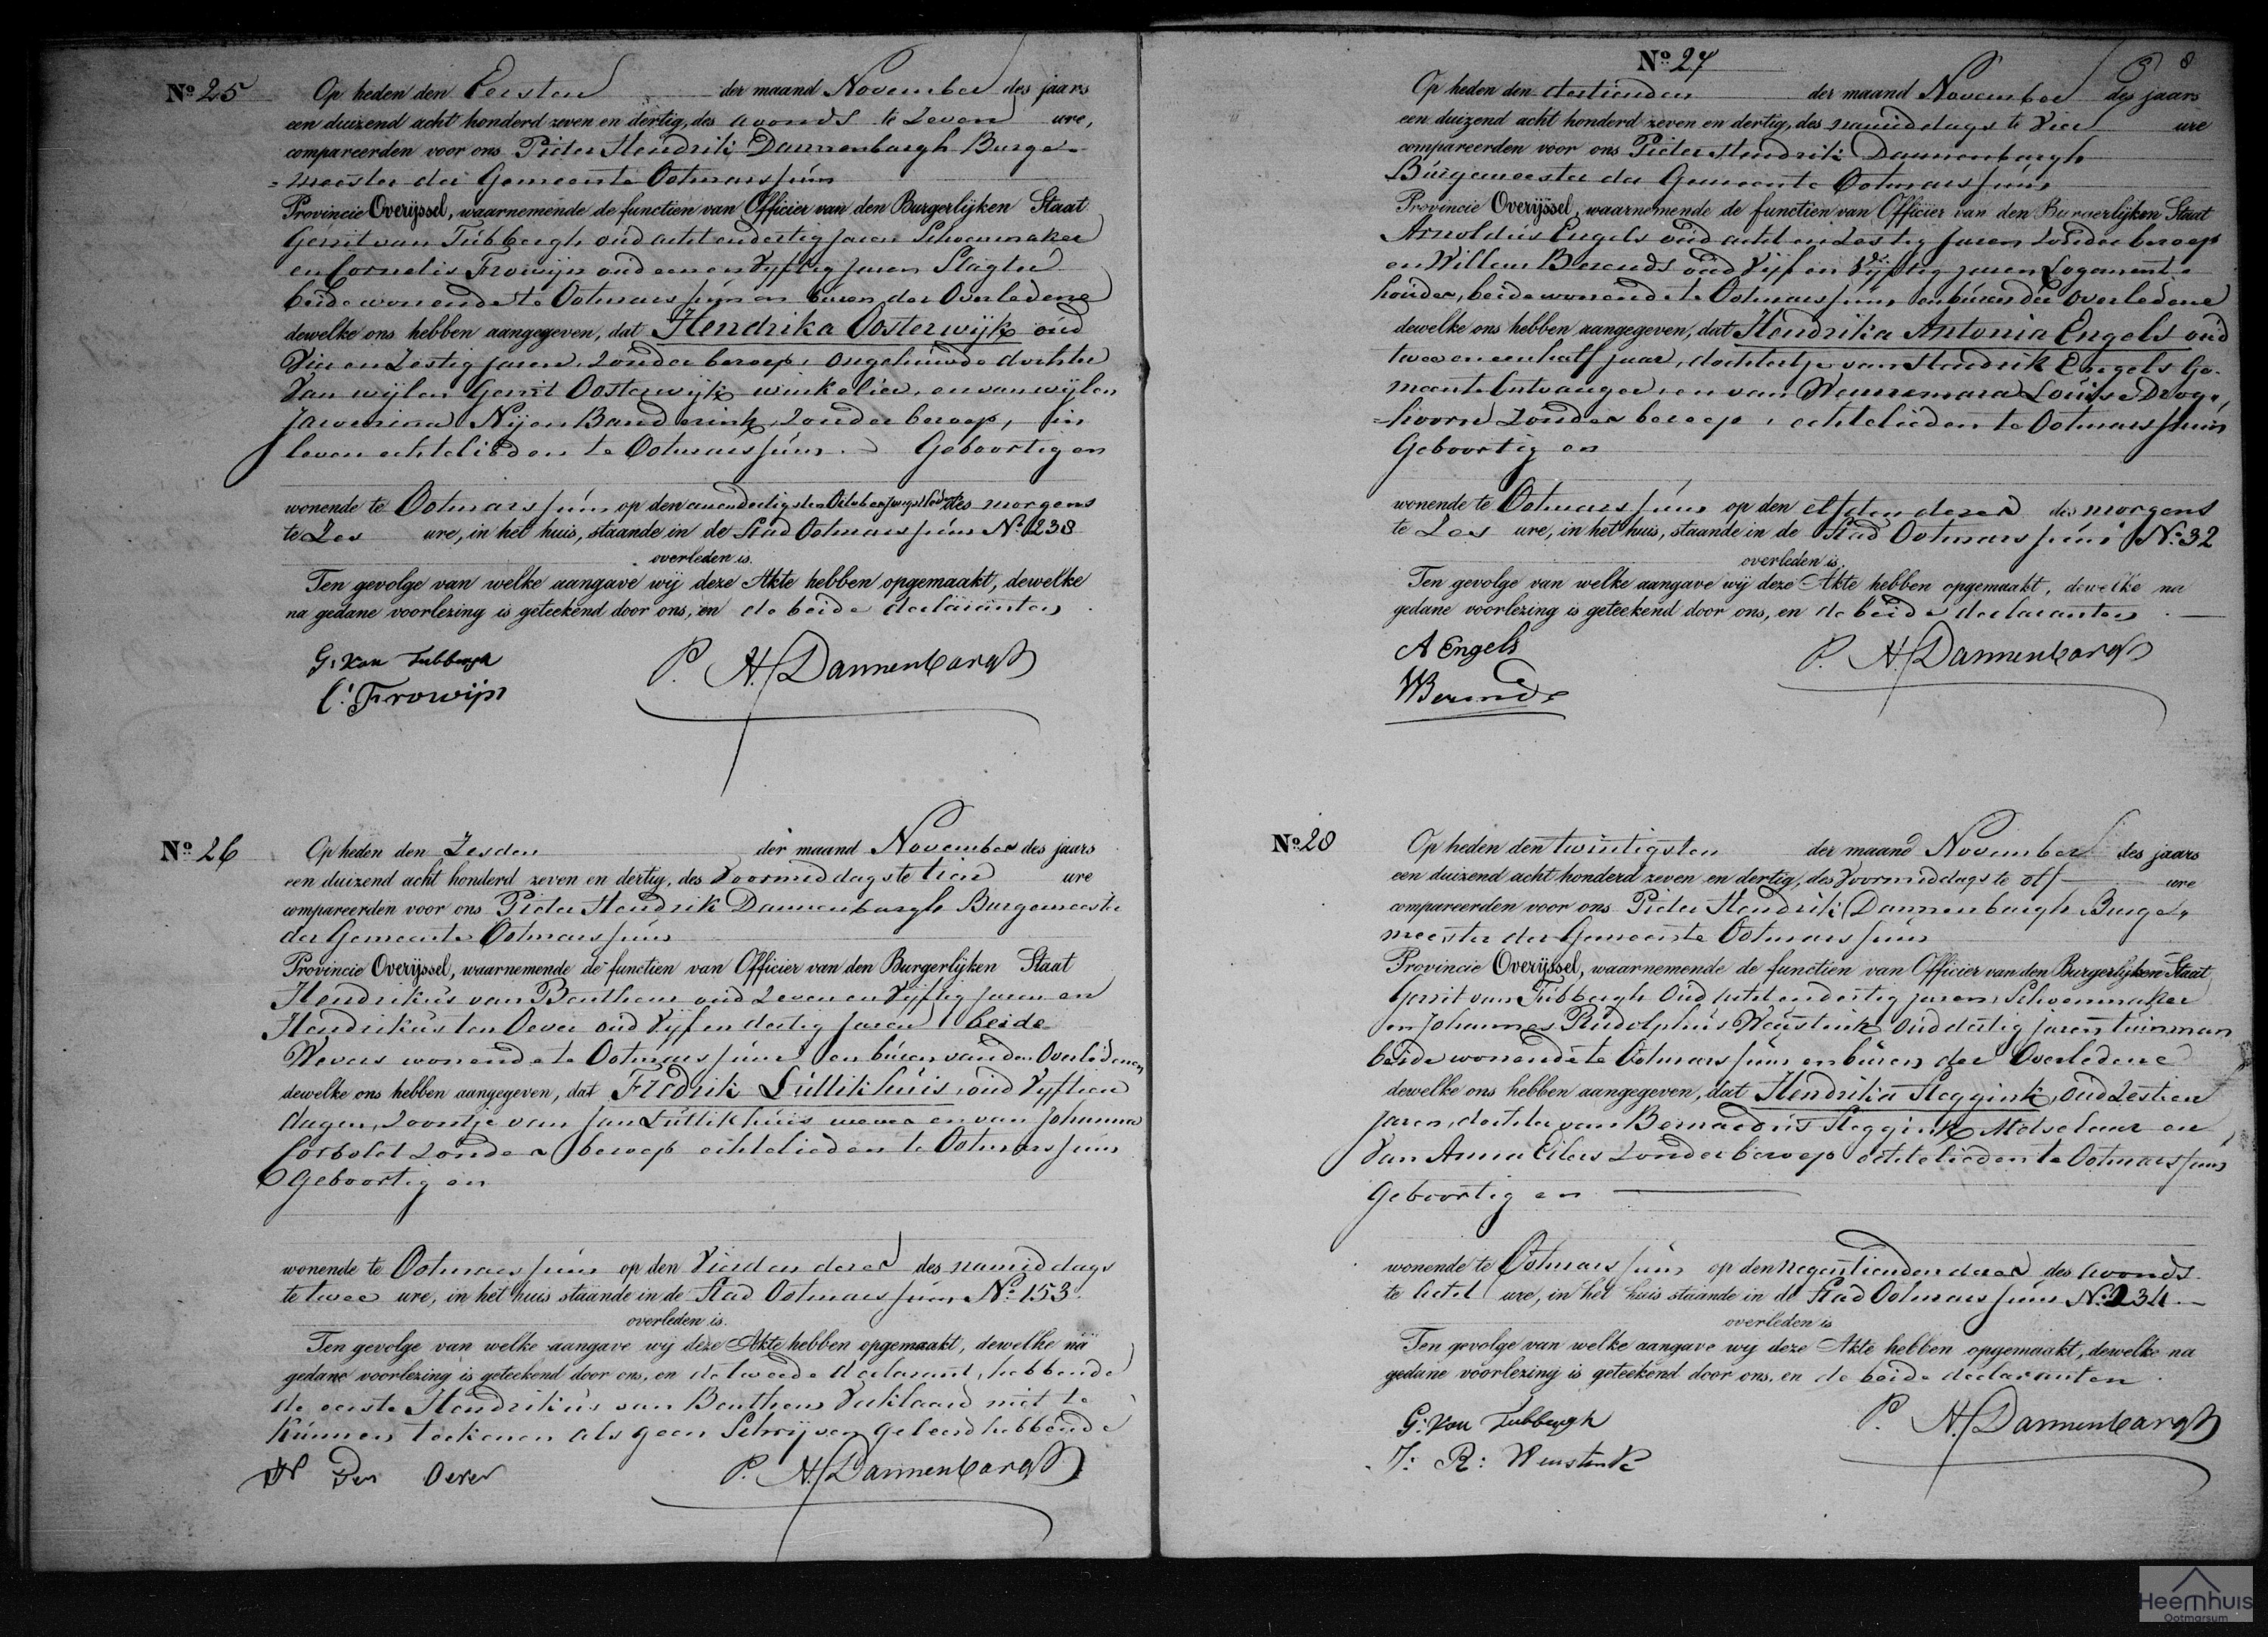 No 25
Op heden den Eersten der maand November des jaars
een duizend acht honderd zeven en dertig, des avonds te Zeven ure,
compareerden voor ons Pieter Hendrik Dannenbargh Burge-
=meester der Gemeente Ootmarssum
Provincie Overijssel, waarnemende de functien van Officier van den Burgerlijken Staat
Gerrit van Tubbergh oud acht en dertig jaren Schoenmaker
en Cornelis Frowijn oud een en Vijftig jaren Slagter
beide wonende te Ootmarssum en buren der Overledene
dewelke ons hebben aangegeven, dat Hendrika Oosterwijk oud
Vier en Zestig jaren, Zonder beroep, ongehuwde dochter
Van wijlen Gerrit Oosterwijk winkelier, en van wijlen
Nijen Banderink, Zonder beroep, in
leven echtelieden te Ootmarssum. Geboortig en
wonende te Ootmarssum op den eenendertigsten October jongstleden des morgens
te Zes ure, in het huis, staande in de Stad Ootmarssum No 238
overleden is.
Ten gevolge van welke aangave wij deze Akte hebben opgemaakt, dewelke
na gedane voorlezing is geteekend door ons, en de beide declaranten
G: Van Tubbergh
C: Frowijn
P. H. Dannenbargh
No 26
Op heden den Zesden der maand November des jaars
een duizend acht honderd zeven en dertig, des Voormiddags te tien ure
compareerden voor ons Pieter Hendrik Dannenbargh Burgemeester
der Gemeente Ootmarssum
Provincie Overijssel, waarnemende de functien van Officier van den Burgerlijken Staat
Hendrikus van Benthem oud Zeven en Vijftig jaren en
Hendrikus ten Oever oud Vijf en dertig jaren beide
Wevers wonende te Ootmarssum en buren van den Overledenen
dewelke ons hebben aangegeven, dat Fredrik Luttikhuis, oud Vyftien
dagen, Zoontje van Jan Luttikhuis wever en van Johanna
Zonder beroep echtelieden te Ootmarssum
Geboortig en
wonende te Ootmarssum op den Vierden dezer des namiddags
te twee ure, in het huis staande in de Stad Ootmarssum No 153
overleden is.
Ten gevolge van welke aangave wij deze Akte hebben opgemaakt, dewelke na
gedane voorlezing is geteekend door ons, en de tweede declarant, hebbende
de eerste Hendrikus van Benthem Verklaard niet te
Kunnen teekenen als geen Schrijven geleerd hebbende
H Ten Oever
P. H. Dannenbargh
No 27
8
Op heden den dertienden der maand November des jaars
een duizend acht honderd zeven en dertig, des namiddags te Vier ure
compareerden voor ons Pieter Hendrik Dannenbargh
Burgemeester der Gemeente Ootmarssum
Provincie Overijssel, waarnemende de functien van Officier van den Burgerlijken Staat
Arnoldus Engels oud acht en Zestig jaren Zonder beroep
en Willem Berends oud Vijf en Vijftig jaren Logement-
houder, beide wonende te Ootmarssum en buren der Overledene
dewelke ons hebben aangegeven, dat Hendrika Antonia Engels oud
twee en een half jaar, dochtertje van Hendrik Engels Ge-
meente Ontvanger, en van Louise Droge,
=hoorn Zonder beroep, echtelieden te Ootmarssum
Geboortig en
wonende te Ootmarssum op den elfden dezer des morgens
te Zes ure, in het huis, staande in de Stad Ootmarssum No 32
overleden is.
Ten gevolge van welke aangave wij deze Akte hebben opgemaakt, dewelke na
gedane voorlezing is geteekend door ons, en de beide declaranten
A Engels
WBerends
P. H. Dannenbargh
No 28
Op heden den twintigsten der maand November des jaars
een duizend acht honderd zeven en dertig, des Voormiddags te elf ure
compareerden voor ons Pieter Hendrik Dannenbargh Burge,,
meester der Gemeente Ootmarssum
Provincie Overijssel, waarnemende de functien van Officier van den Burgerlijken Staat
Gerrit van Tubbergh Oud acht en dertig jaren, Schoenmaker
en Johannes Rudolphus Weustink Oud dertig jaren tuinman
beide wonende te Ootmarssum en buren der Overledene
dewelke ons hebben aangegeven, dat Hendrika Heggink, Oud Zestien
jaren, dochter van Bernardus Heggink Metselaar en
Van Anna Eilers Zonder beroep echtelieden te Ootmarssum
Geboortig en
wonende te Ootmarssum op den negentienden dezer des avonds
te acht ure, in het huis staande in de Stad Ootmarssum No 234
overleden is
Ten gevolge van welke aangave wij deze Akte hebben opgemaakt, dewelke na
gedane voorlezing is geteekend door ons, en de beide declaranten
G: Van Tubbergh
J: R: Weustink
P. H. Dannenbargh
Heemhuis
Ootmarsum